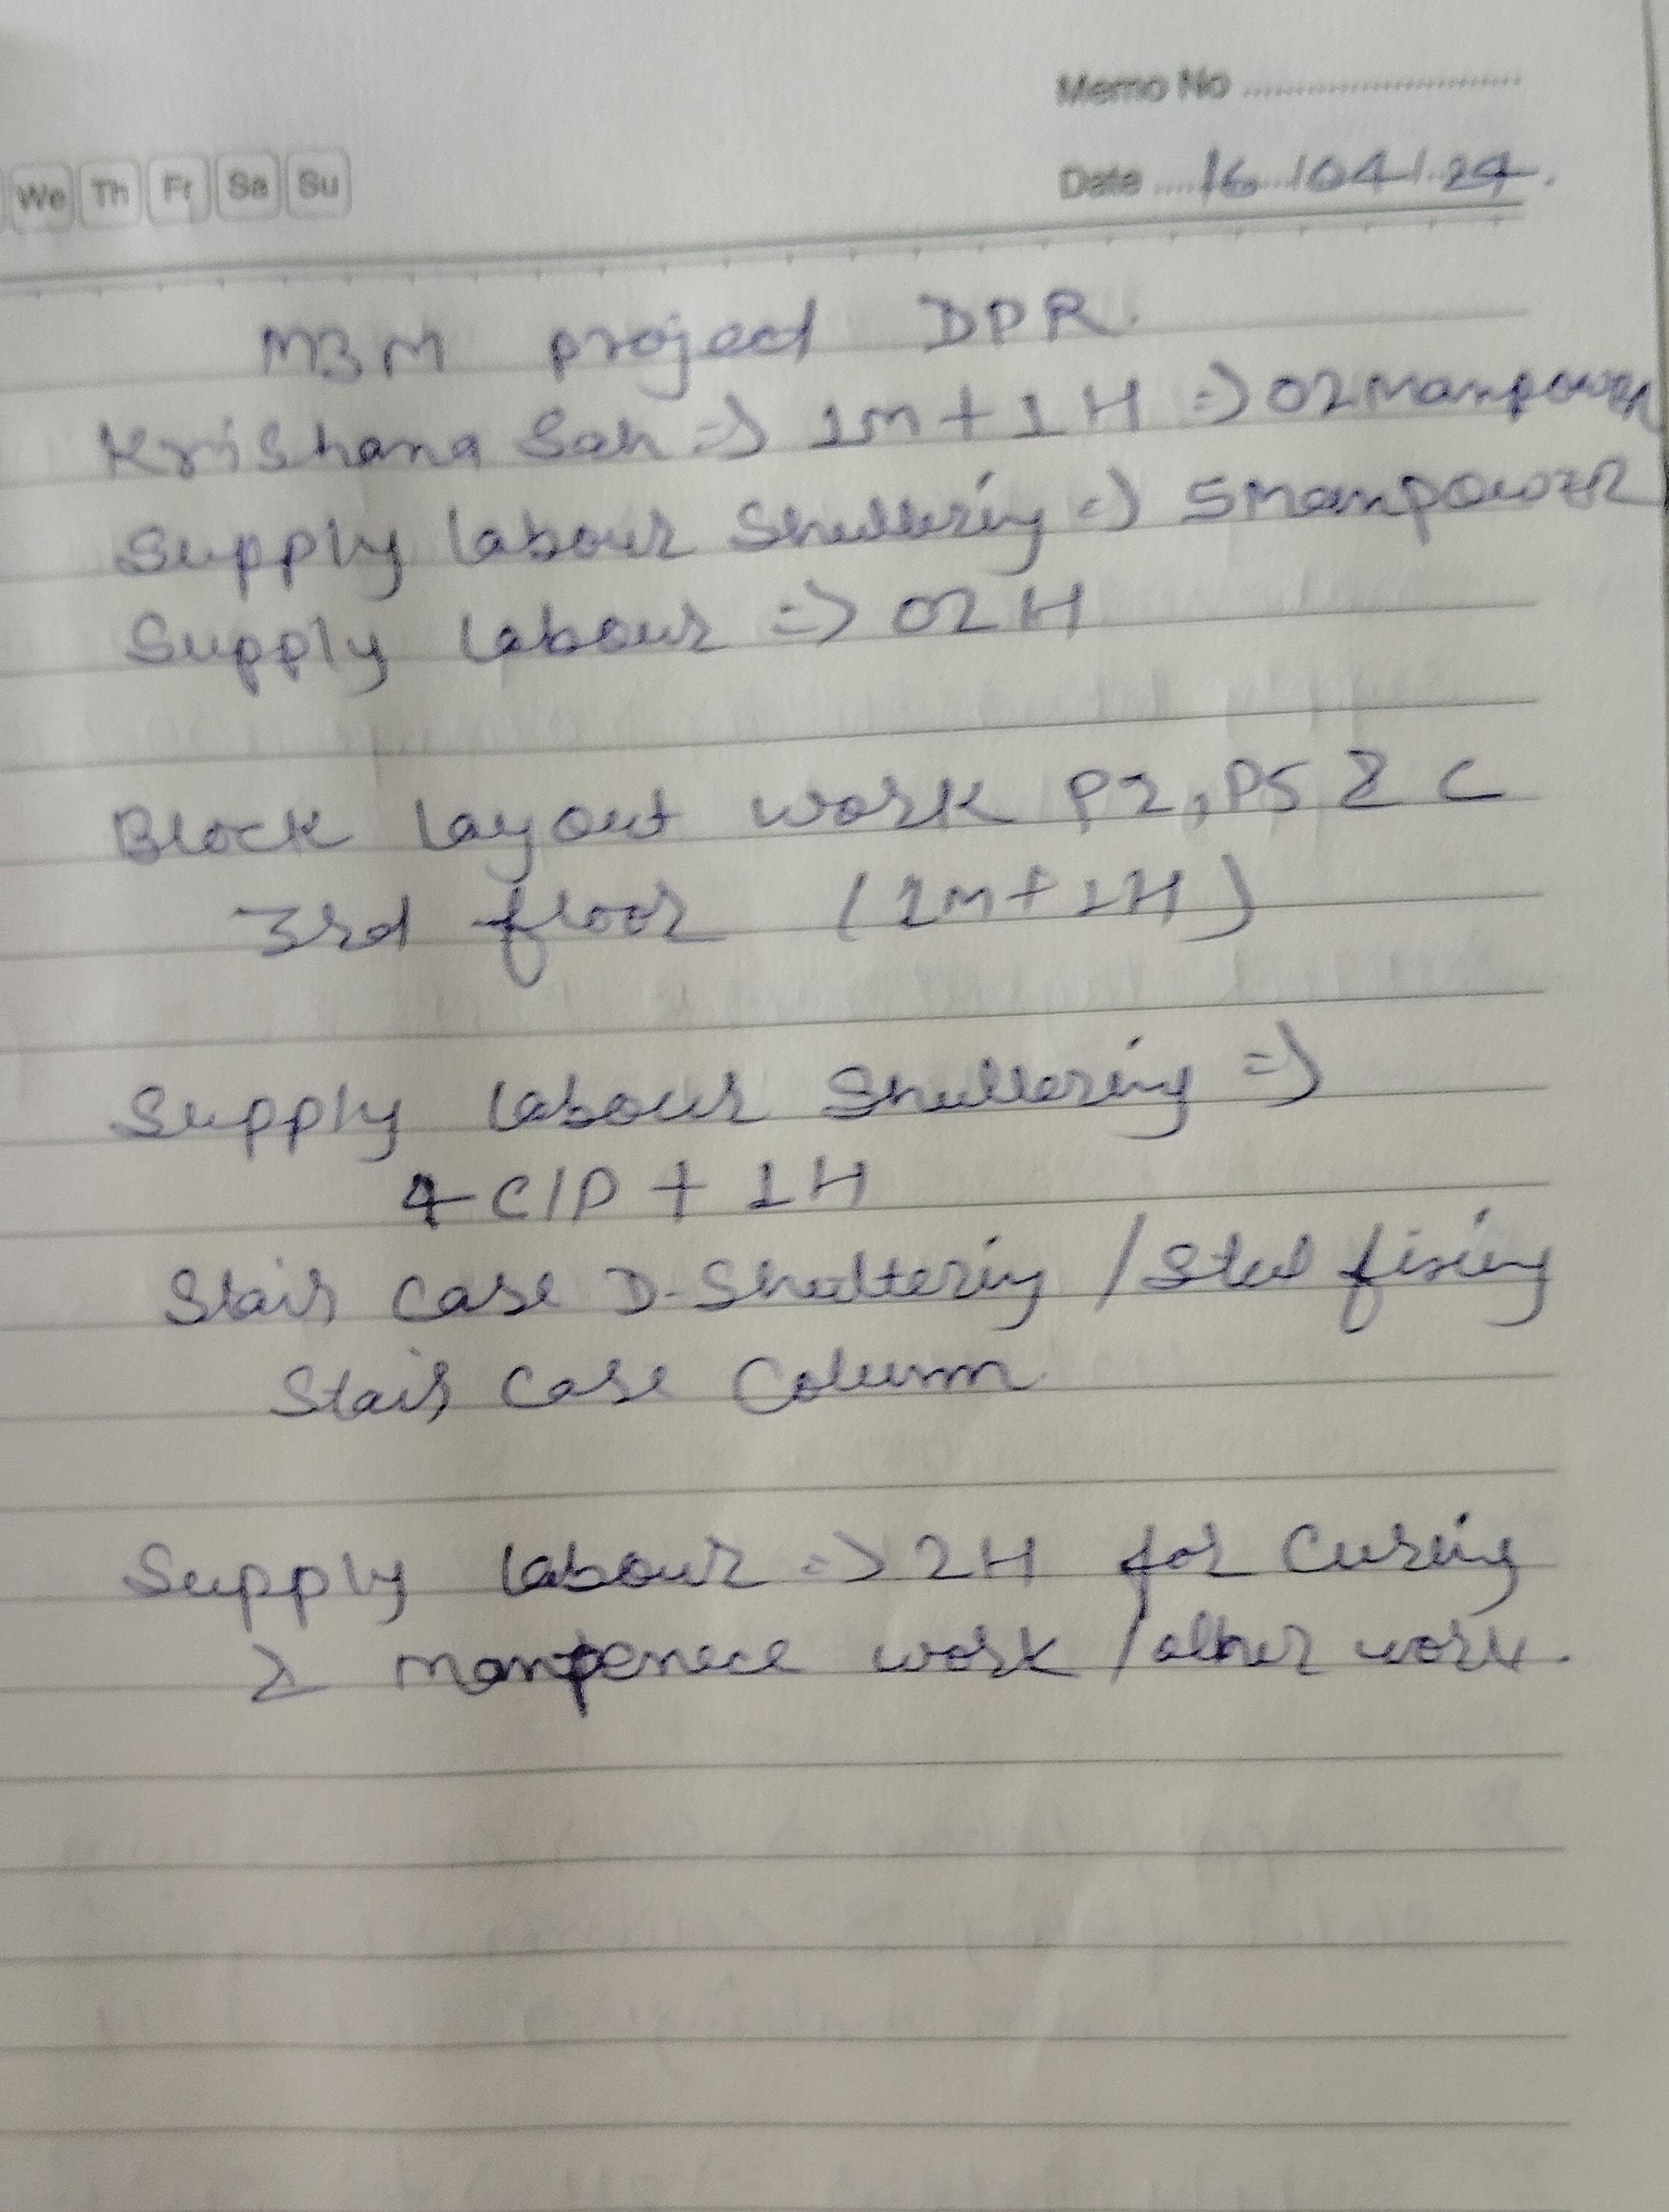 Memo No
We Th Fr Sa Su
Date 16/04/24.
M3M project DPR.
Krishana Sah => 1m + 1H => 02 manpower
Supply labour Shuttering => 5 manpower
Supply labour => 02H
Block layout work P2, P5 & C
3rd floor (1m+1H)
Supply labour Shuttering =>
4 C/P + 1H
Stair case D-Shuttering / Steel fixing
Stair case Column
Supply labour => 2H for Curing
& work / other work.